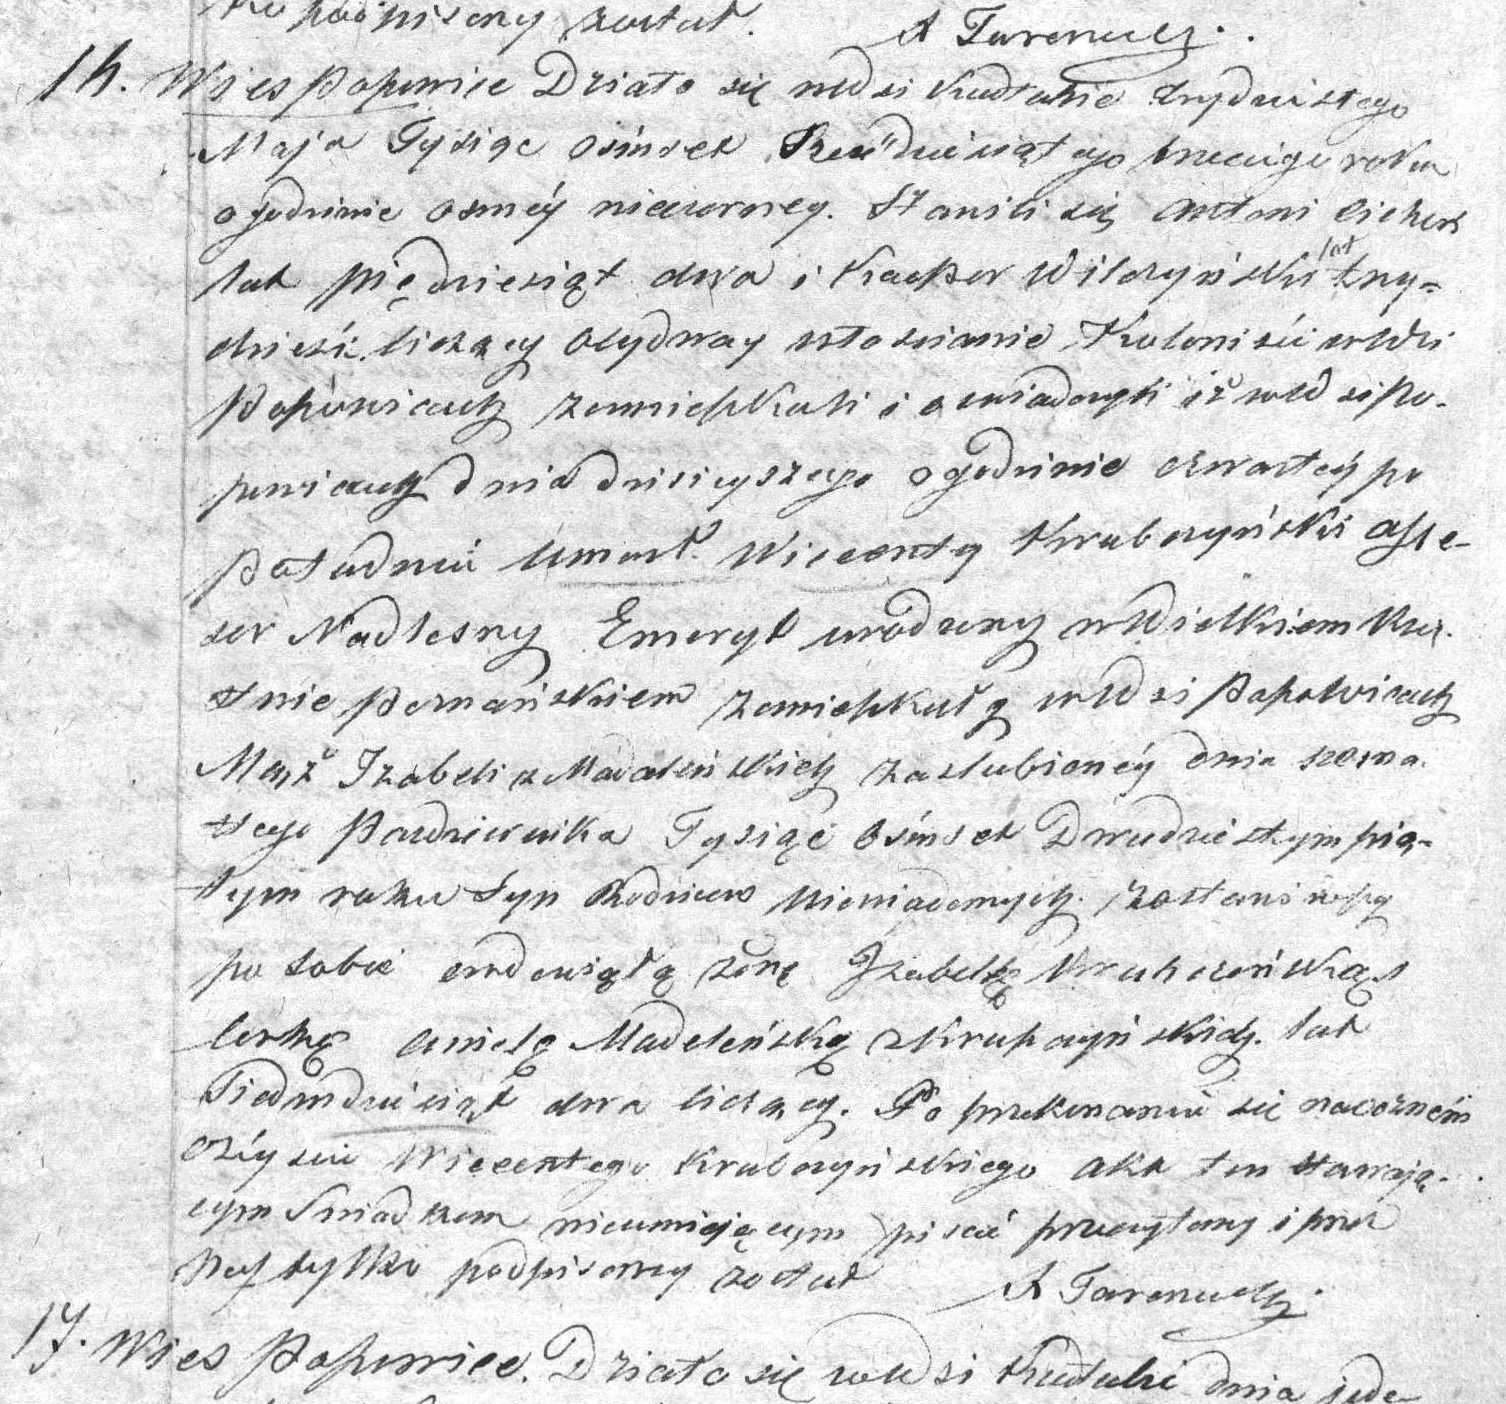 podpisany został. A Tarenucz
16. Wies Popowice Działo się we Wsi Kadłubie trzydziestego
Maja Tysiąc osimset sześdziesiątego trzeciego roku
o godzinie osméy wieczornej. Stawili się Antoni Cichosz
lat piędziesiąt dwa i Kacper Wilczyński lat trzy=
dzieści liczący obydway włoscianie Kolonisci we Wsi
Popowicach zamieszkali i oswiadczyli iż we Wsi Po-
powicach dnia dzisieyszego o godzinie czwartéy po
Południu Umarł Wicenty Krubczyński Asse-
sor Nadlesny Emeryt urodzony w Wielkiem Xię-
stwie Poznańskiem zamieszkały we Wsi Popowicach
Mąż Izabeli z Madalińskich zaslubionéy dnia szesna-
stego Pazdziernika Tysiąc Osimset Dwudziestym pią-
tym roku Syn Rodzicow Niewiadomych. zostawiwszy
po sobie owdowiałą żonę Izabellę Krubczińską i
Corkę Anielę Madeleńską z Krupczyńskich. lat
Siedmdziesiąt dwa liczący. Po przekonaniu się naocznem
o zéysciu Wicentego Krubczyńskiego akt ten stawają-
cym Swiadkom nieumiejącym pisać przeczytany i przez
Nas tylko podpisany został A Tarenucz
17. Wies Popowice. Działo się we Wsi Kadłubie dnia jede